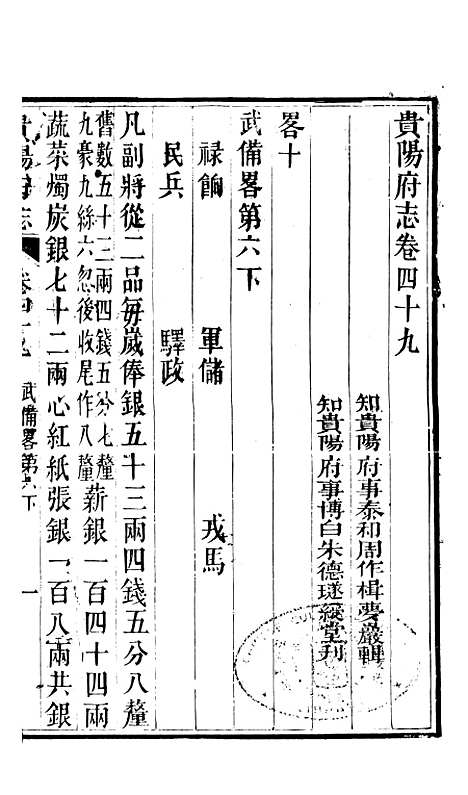 貴陽府志卷四十九
知貴陽府事泰和周作楫夢巖輯
知貴陽府事博白朱德璲綬堂刊
畧十
武備畧第六下
祿餉　軍儲　戎馬
民兵　驛政
凡副將從二品每歲俸銀五十三兩四錢五分八釐
舊數五十三兩四錢五分七釐
九豪九絲六忽後收尾作八釐
薪銀一百四十四兩
蔬菜燭炭銀七十二兩心紅紙張銀一百八兩共銀
貴陽府志
卷四十九
武備畧第六下
一